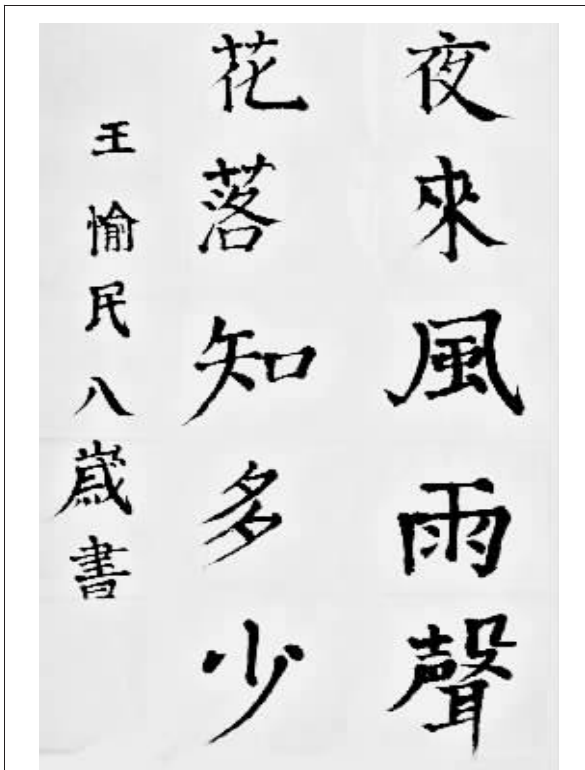 夜來風雨聲
花落知多少
王愉民八歲書